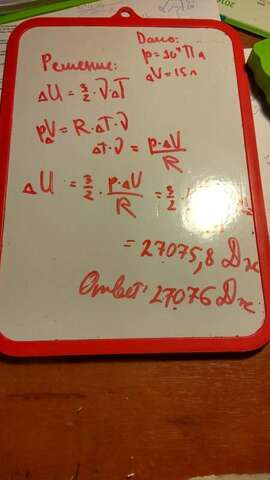 Дано:
p = 10⁴ Па
ΔV = 15л
Решение:
ΔU = 3/2 · ν · ΔT
pVΔ = R · ΔT · ν
Δt · ν = p · ΔV / R
ΔU = 3/2 · p · ΔV / R = 3/2 ·
= 27075,8 Дж
Ответ: 27076 Дж